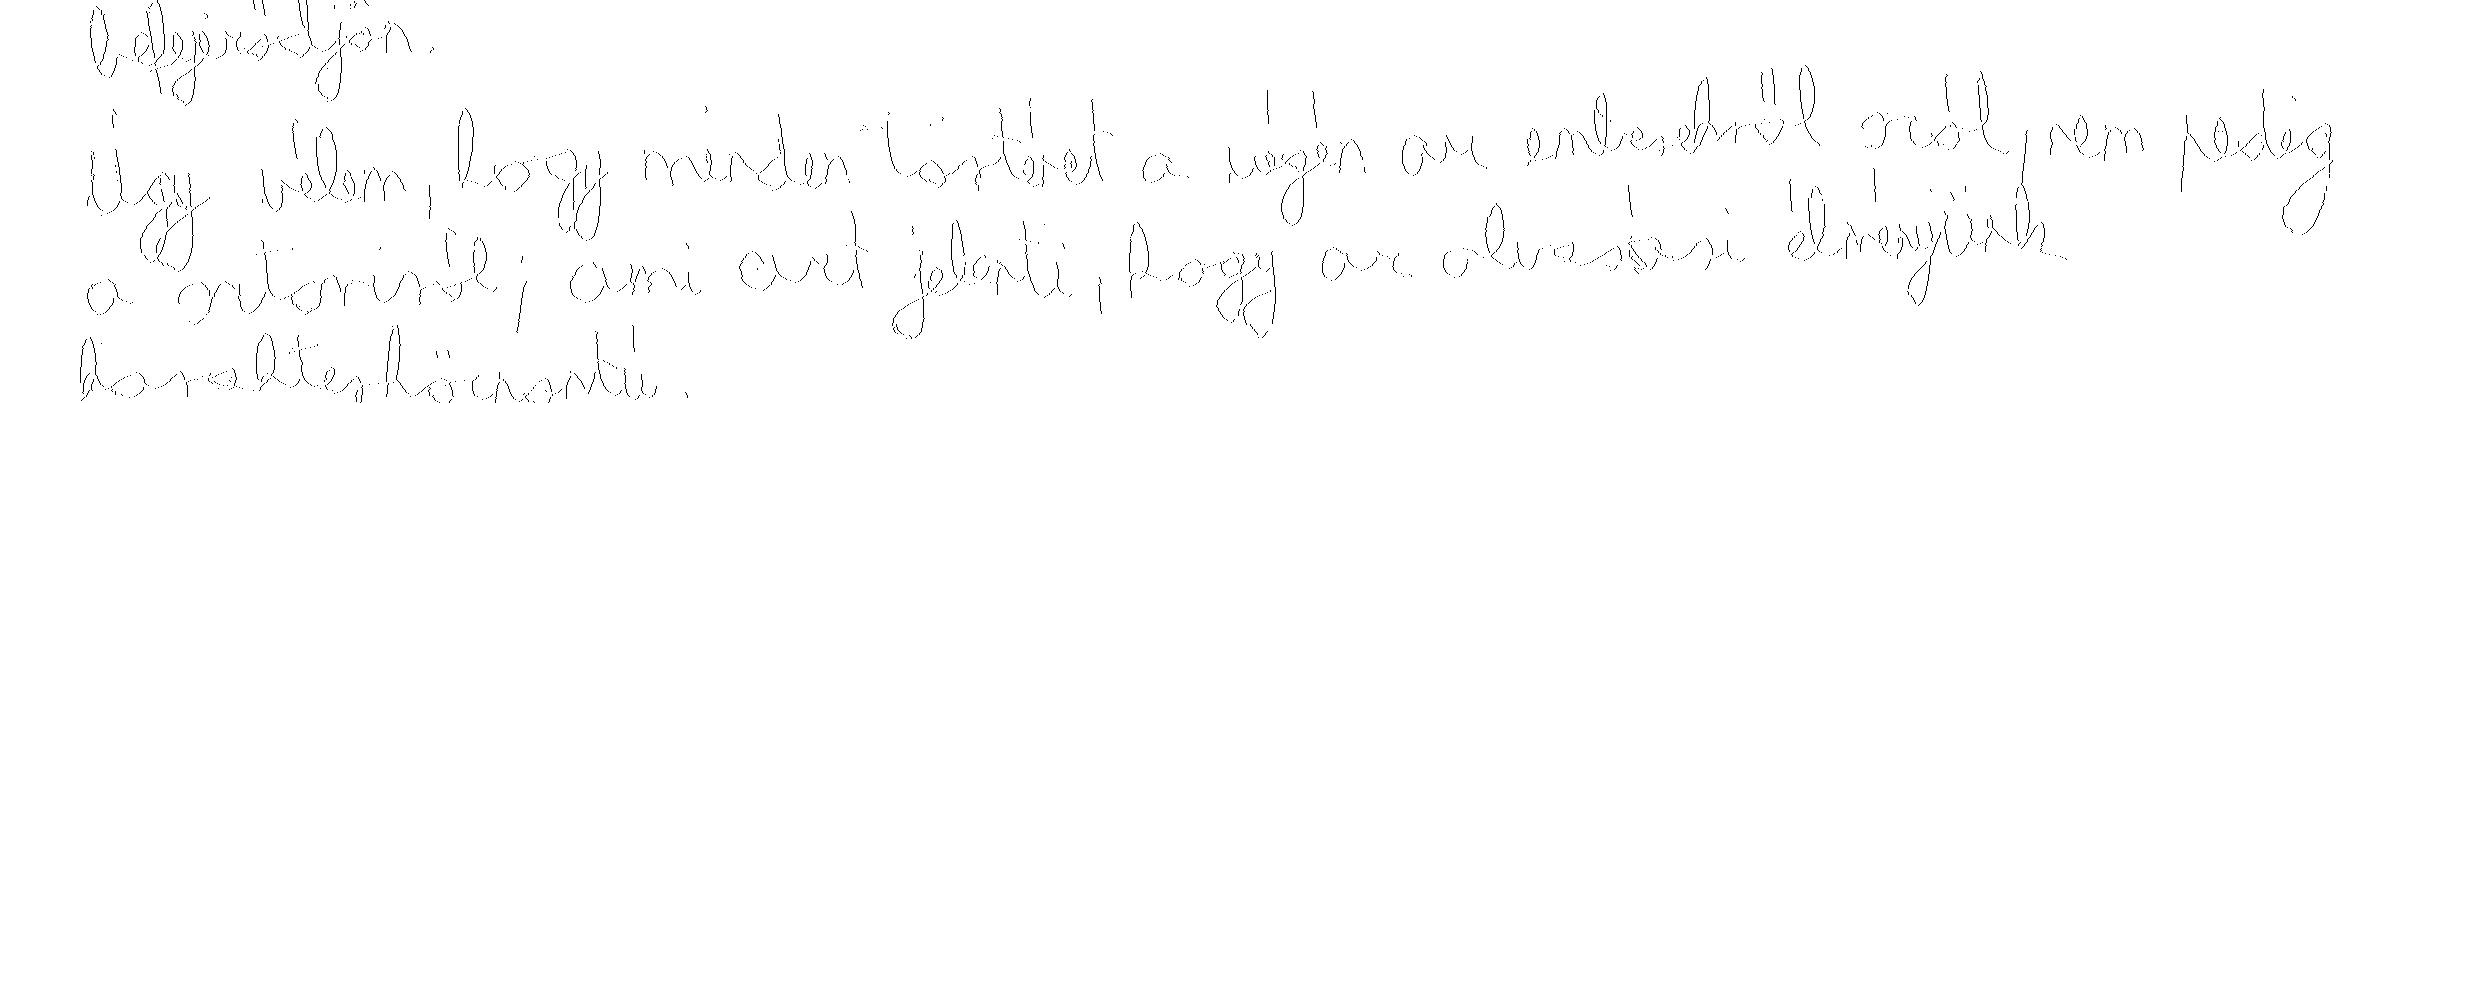 befejeződjön.
Úgy vélem, hogy minden történet a végén az emberekről szól, nem pedig
a sztorinkról, ami azt jelenti, hogy az olvasási élményünk
karakterközpontú.